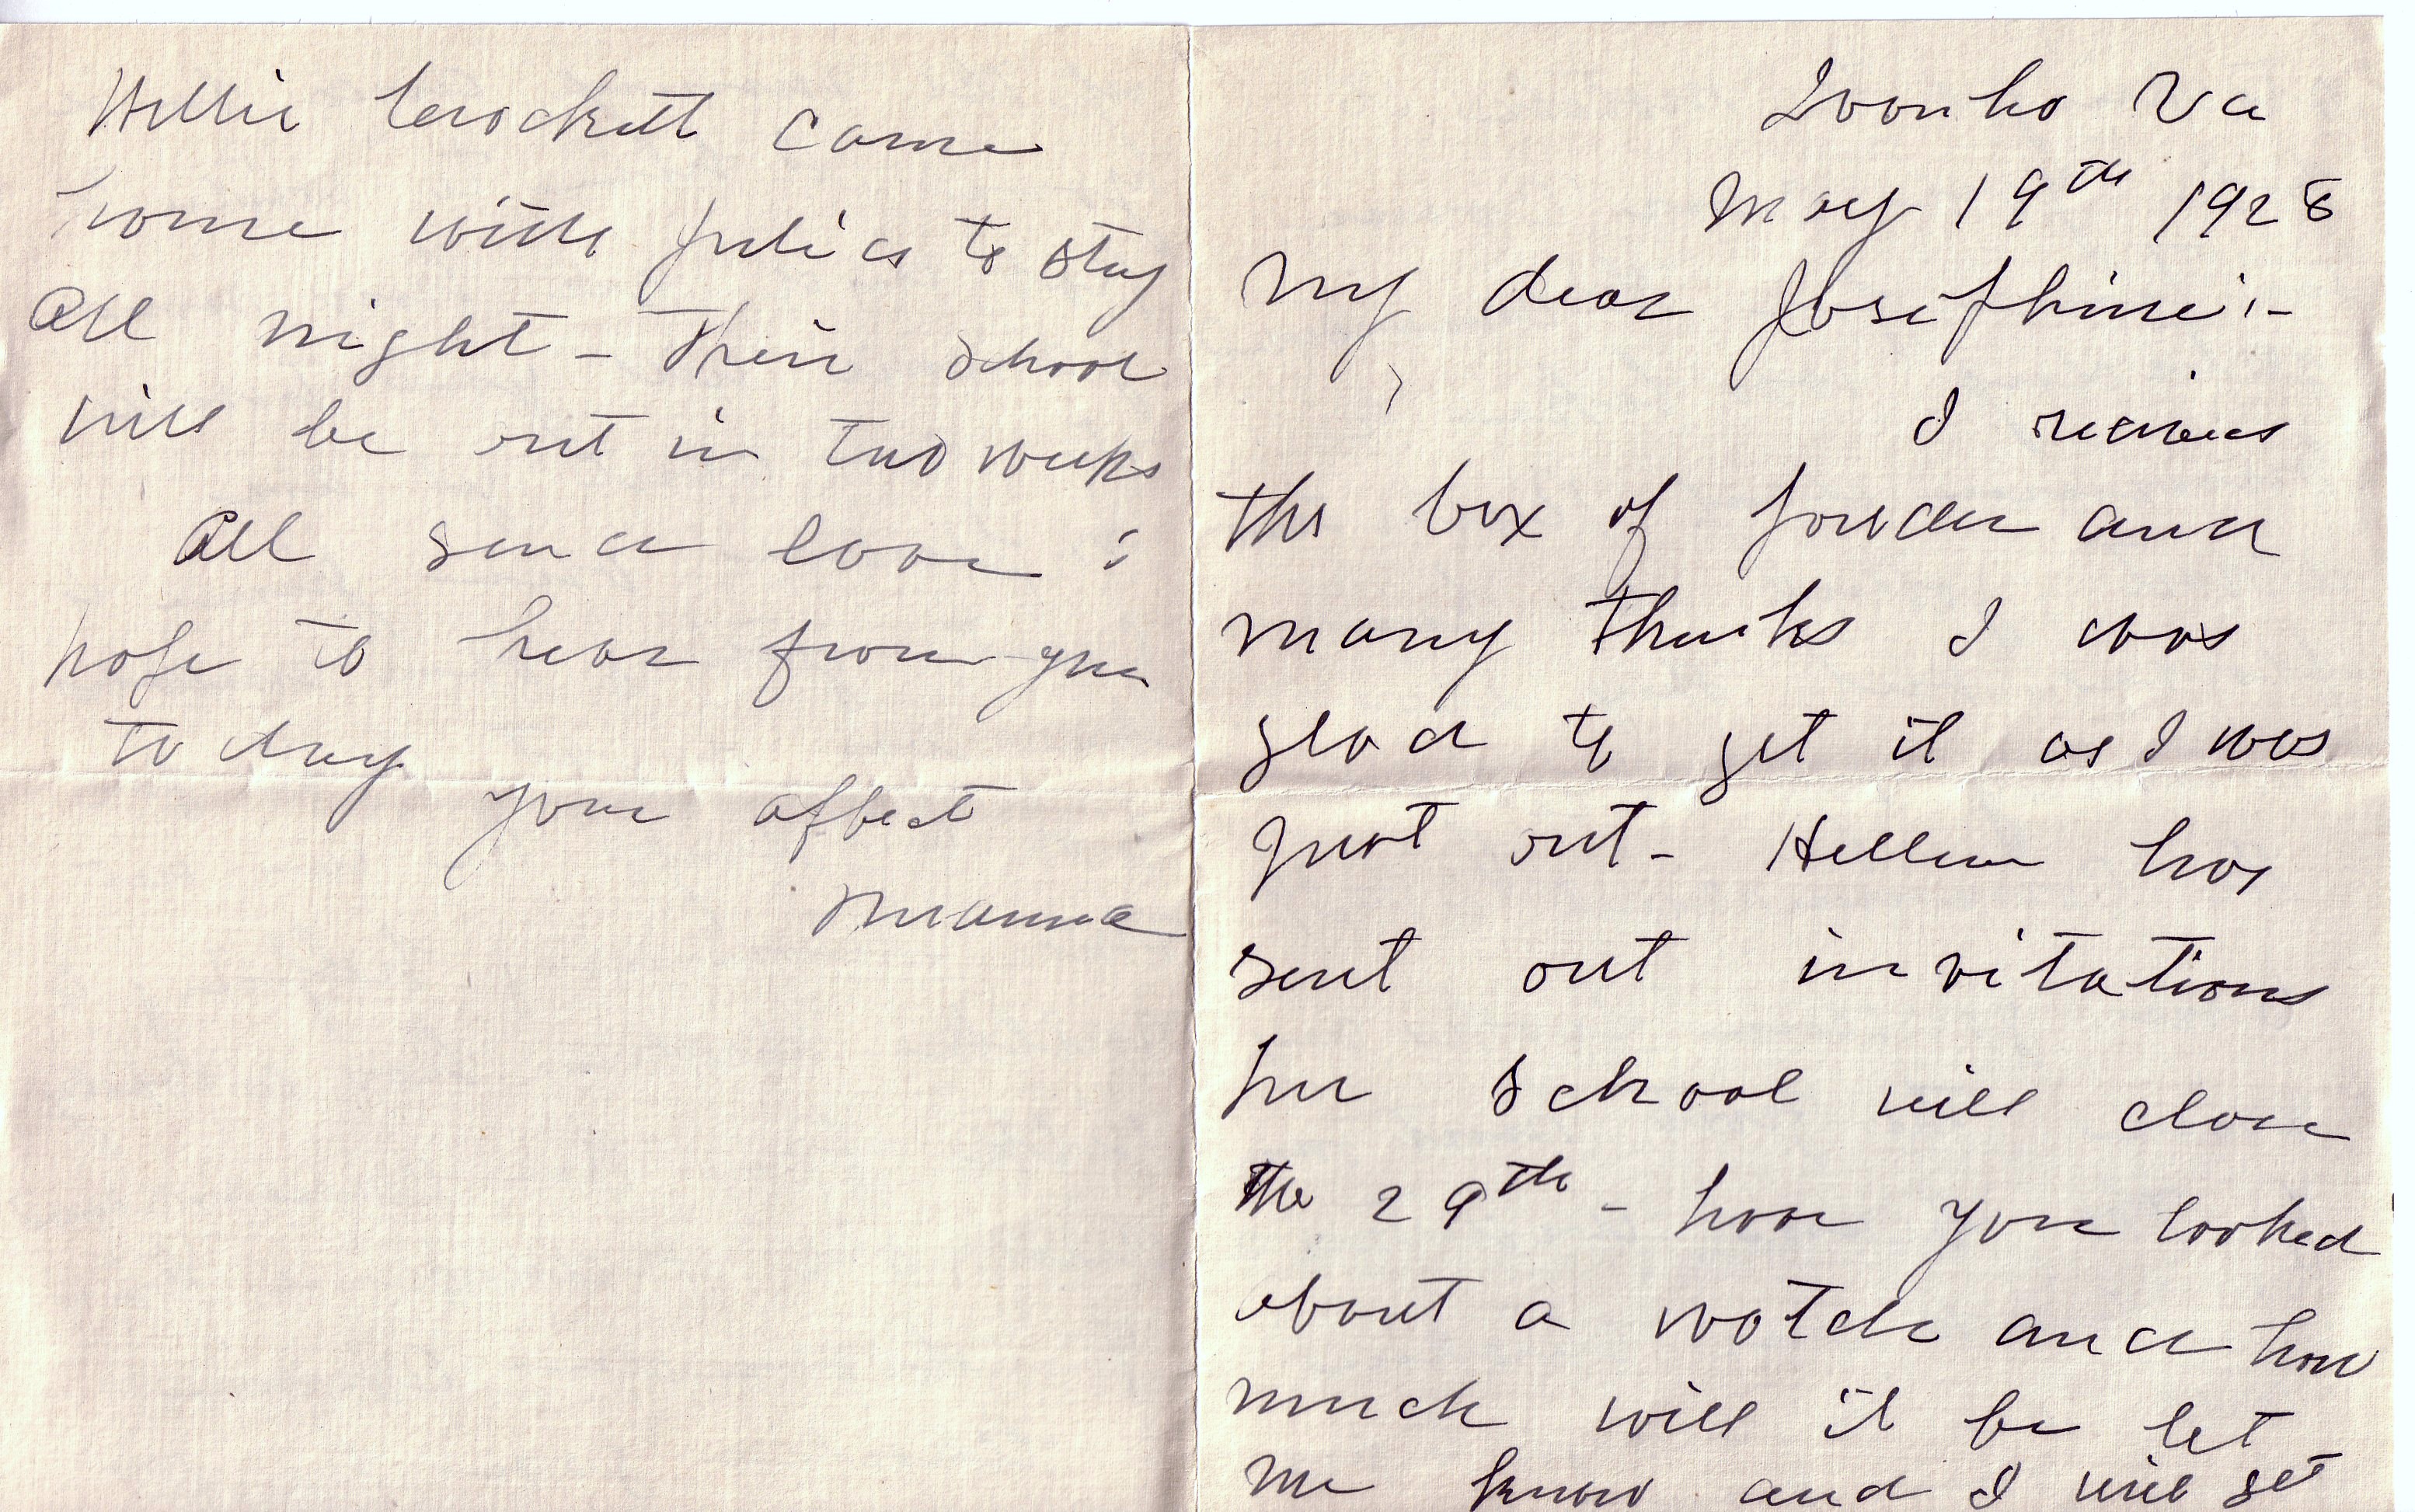 Ivonho Va
May 19th 1928
My dear Josephine:-
I received
the box of powder and
many thanks I was
glad to get it as I was
just out - Hellen has
sent out invitations
her school will close
the 29th - have you looked
about a watch and how
much will it be let
me know and I will get
Crockett came
home with Julia to stay
all night - Their school
will be out in two weeks
All send love :
hope to hear from you
to day
your affect
Mamma